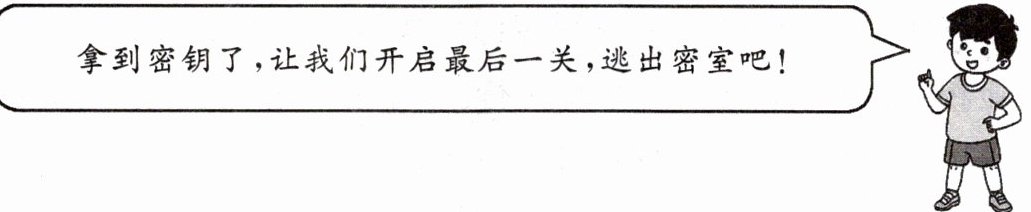 拿到密钥了,让我们开启最后一关,逃出密室吧!